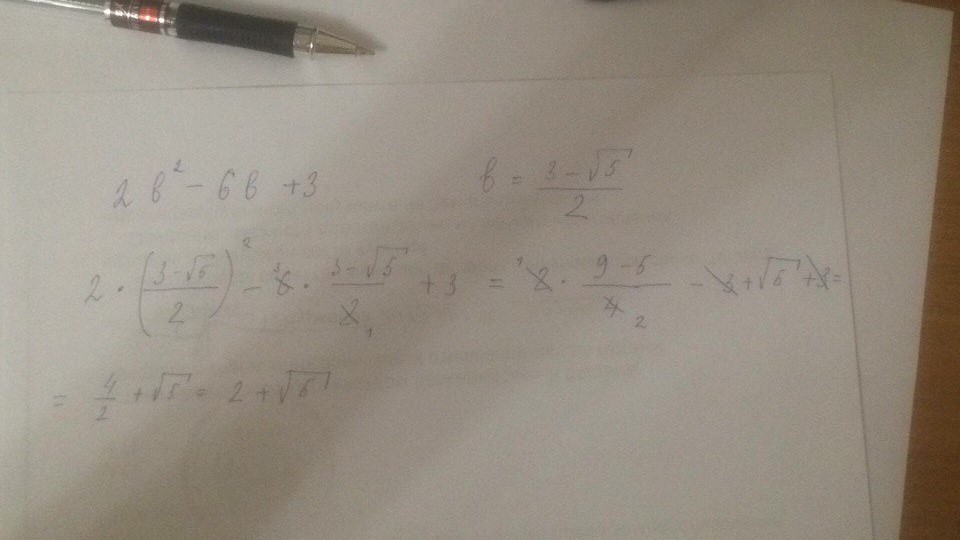 2в² - 6в + 3 в = (3 - √5)/2
2 · ((3 - √5)/2)² - 6̶ ³ · (3 - √5)/2̶ ₁ + 3 = ¹ 2̶ · (9 - 5)/4̶ ₂ - 3̶ + √5 + 3̶ =
= 4/2 + √5 = 2 + √5